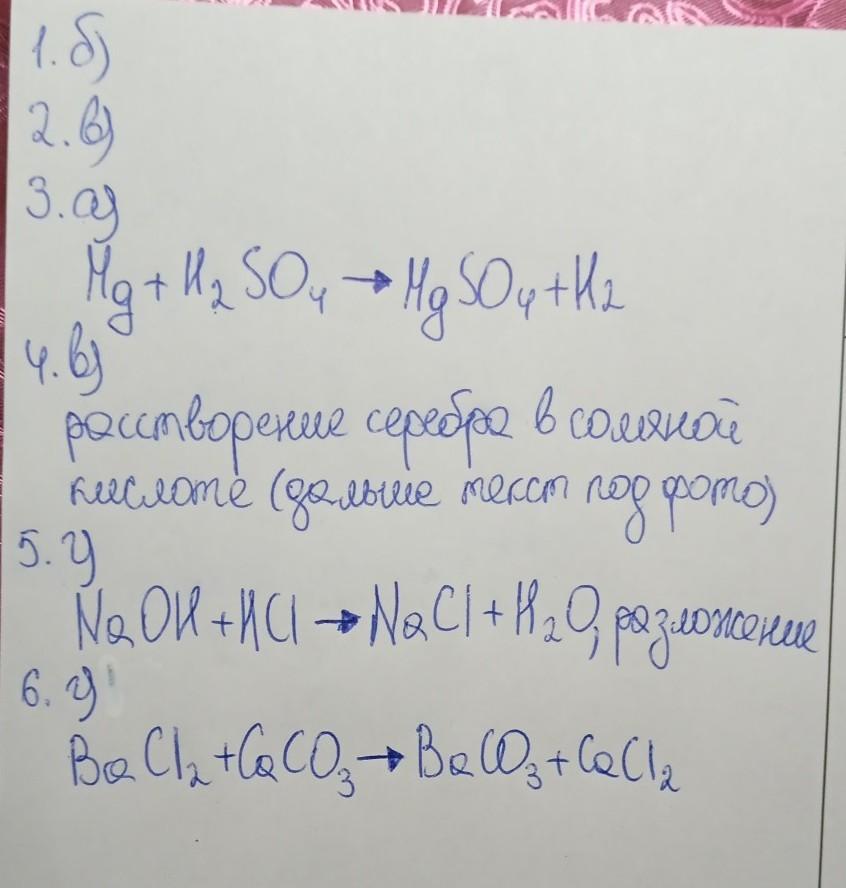 1. б)
2. в)
3. а)
Mg + H₂SO₄ → MgSO₄ + H₂
4. в)
расстворение серебра в соляной
кислоте (дальше текст под фото)
5. г)
NaOH + HCl → NaCl + H₂O, разложение
6. г)
BaCl₂ + CaCO₃ → BaCO₃ + CaCl₂